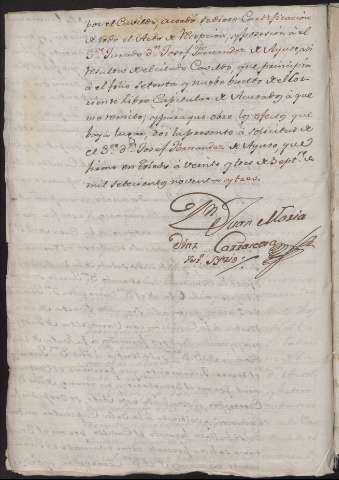 por el Cavildo, acordó se diese Certificacion
de todo el Acto de Recepcion, y posesion á el
Sor. Jurado Dn. Josef Fernandez de Ayuso, así
resulta del citado Cavildo, que principia
á el folio setenta y nueve buelto de el
citado Libro Capitular de Acuerdos á que
me remito; y para que obre los efectos que
haya lugar, doi la presente á solicitud de
el Sor. Dn. Josef Fernandez de Ayuso, que
firmo en Toledo á veinte y tres de Septre. de
mil setecientos noventa y tres.
Juan Maria
Diaz Carrasco